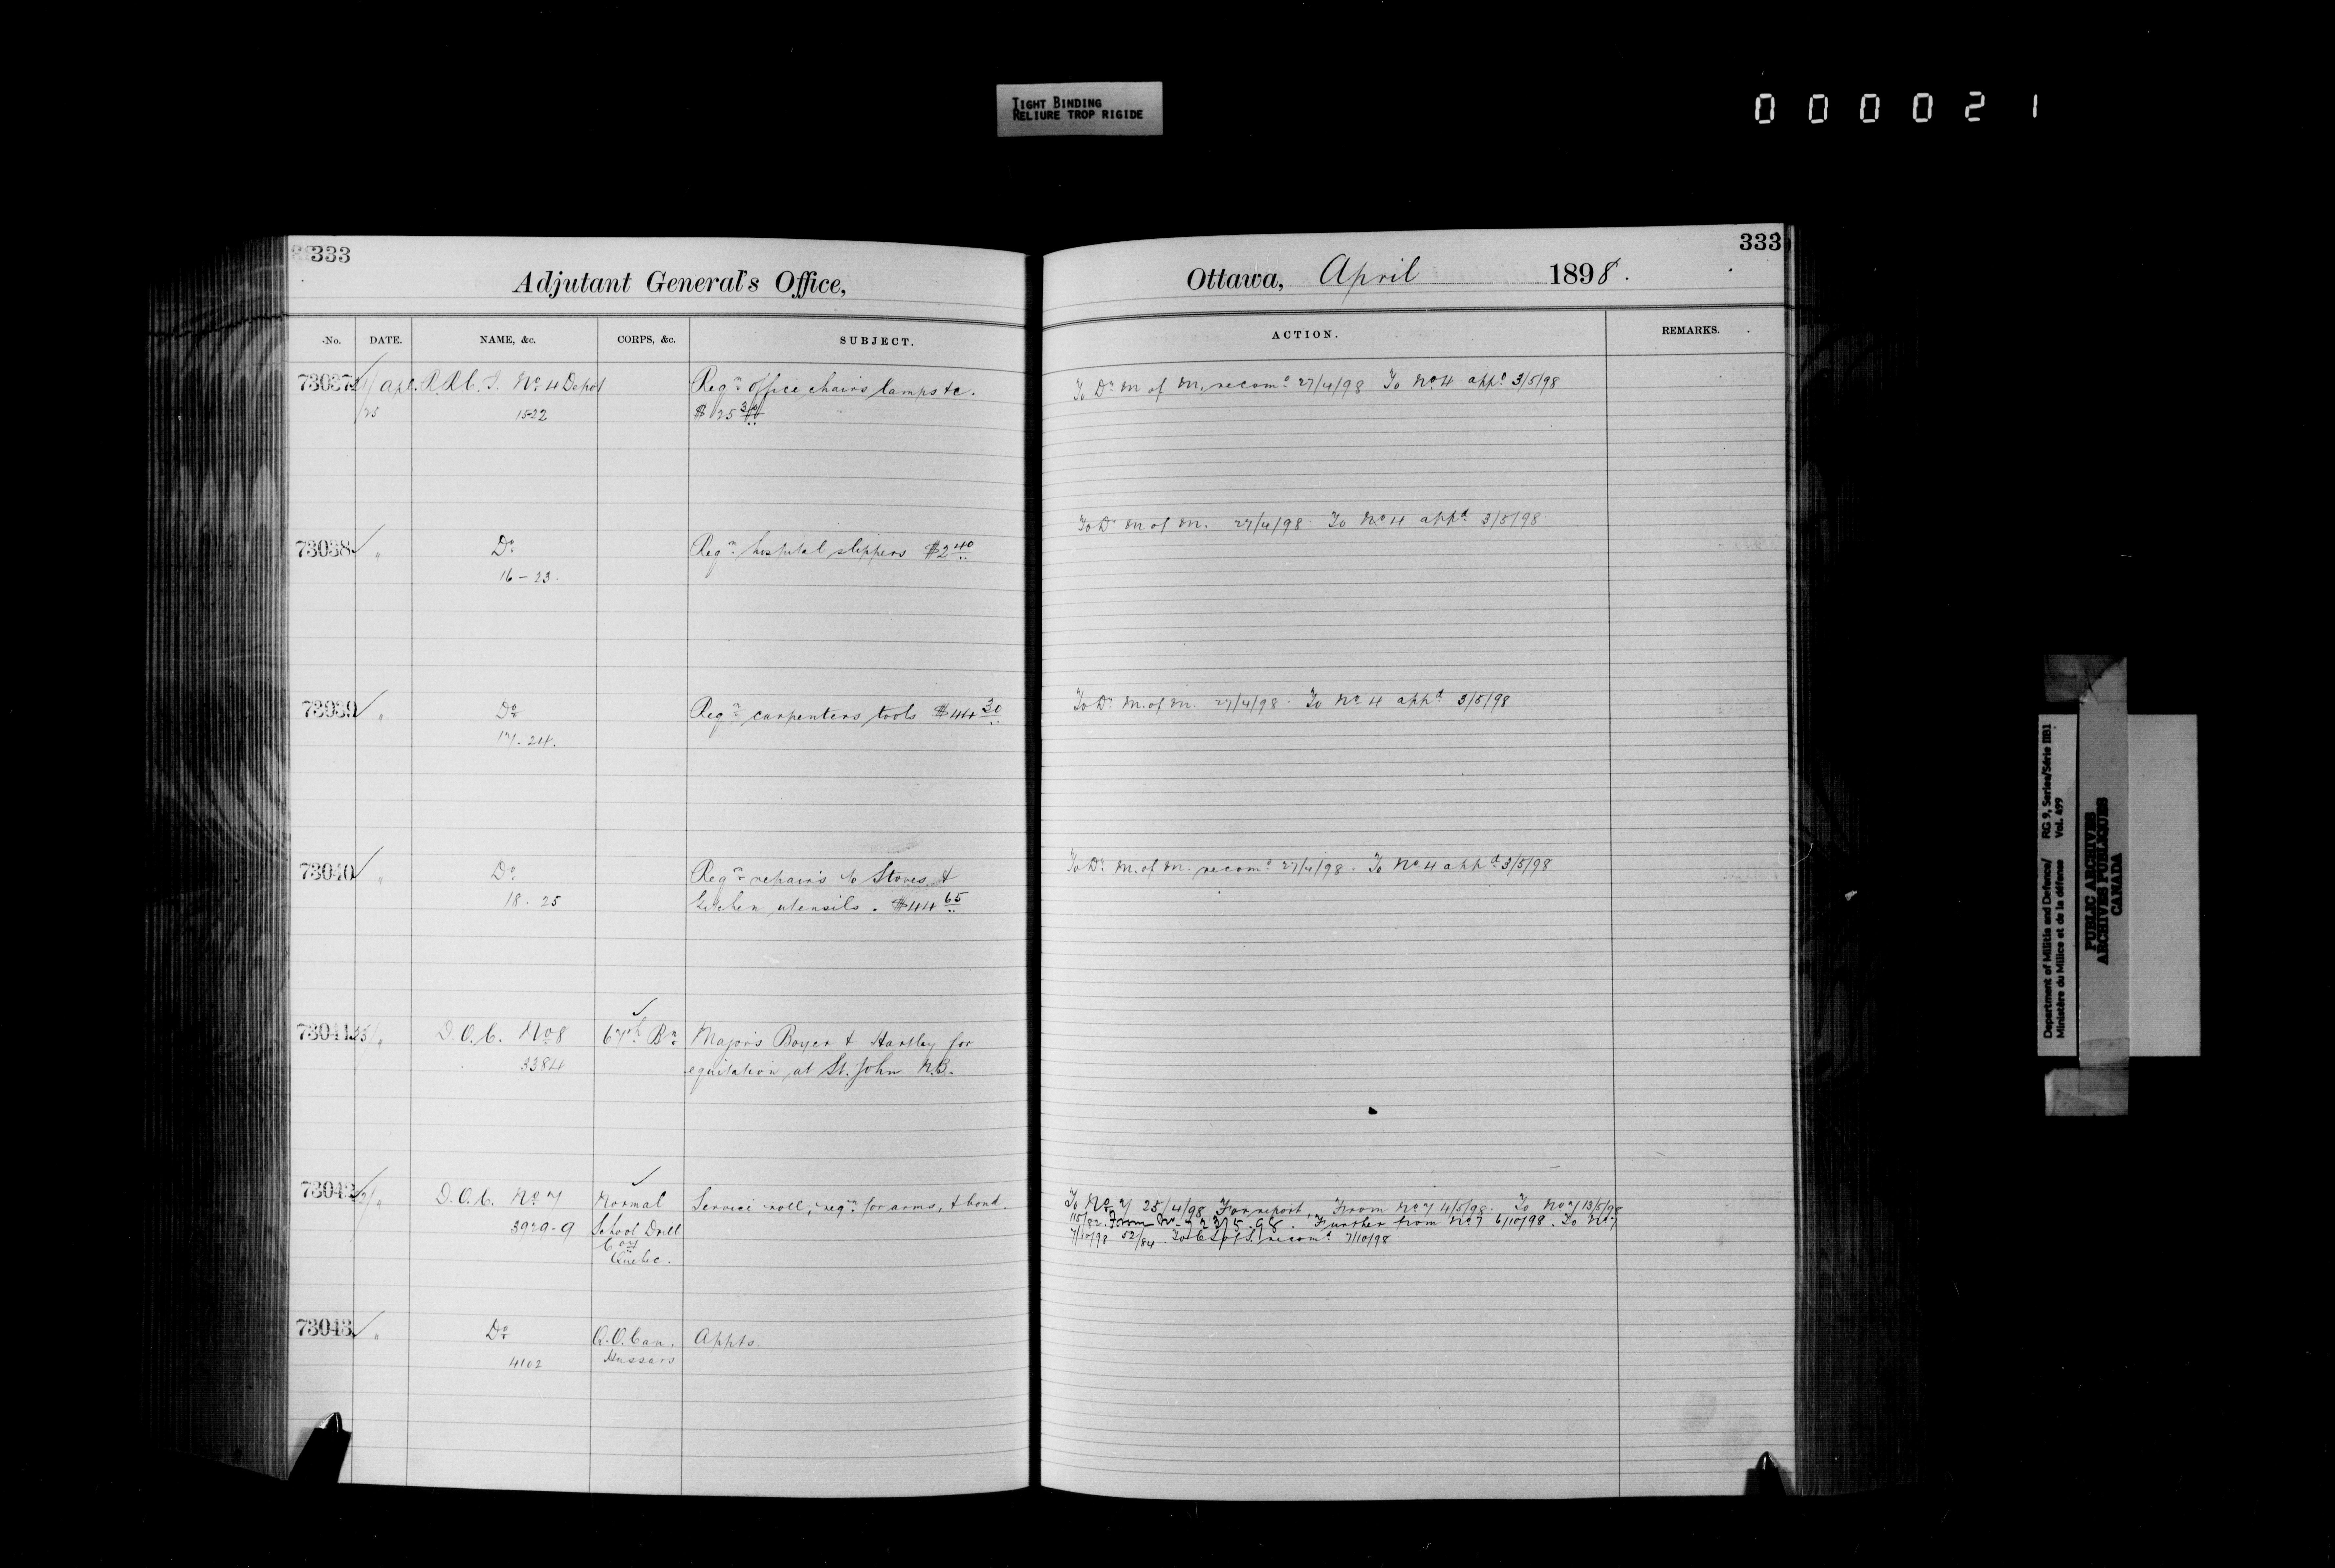 TIGHT BINDING
RELIURE TROP RIGIDE
000021
333
Adjutant General's Office,
No. DATE. NAME, &c. CORPS, &c. SUBJECT.
73037 Apl. R.R.C.I. No 4 Depot Reqn office chairs lamps &c.
25 15-22 $125
73038 " Do Reqn hospital slippers $2 40
16-23.
73039 " Do Reqn carpenters tools $44 30
17.24.
73040 " Do Reqn repairs to Stoves &
18.25 kitchen utensils. $44 65
73041 " D.O.C. No 8 67th Bn Majors Boyer & Hartley for
3384 equitation at St. John N.B.
73042 " D.O.C. No 7 Normal Service roll, reqn for arms, & bond.
3929-9 School Drill
Coy
Quebec.
73043 " Do Q.O. Can. Appts.
4102 Hussars
333
Ottawa, April 1898.
ACTION. REMARKS.
To Dr M of M. recomd 27/4/98 To No 4 appd 3/5/98
To Dr M of M. 27/4/98 To No 4 appd 3/5/98
To Dr M. of M. 27/4/98. To No 4 appd 3/5/98
To Dr M. of M. recomd 27/4/98. To No 4 appd 3/5/98
To No 7 25/4/98 For report, From No 7 4/5/98. To No 7 13/5/98
115/82. From No 7 23/5.98. Further from No 7 6/10/98. To No 7
7/10/98 52/84. To C.S. of S. recomd 7/10/98
Department of Militia and Defence/ RG 9, Series/Série IIB1
Ministère du Milice et de la défense Vol. 499
PUBLIC ARCHIVES
ARCHIVES PUBLIQUES
CANADA